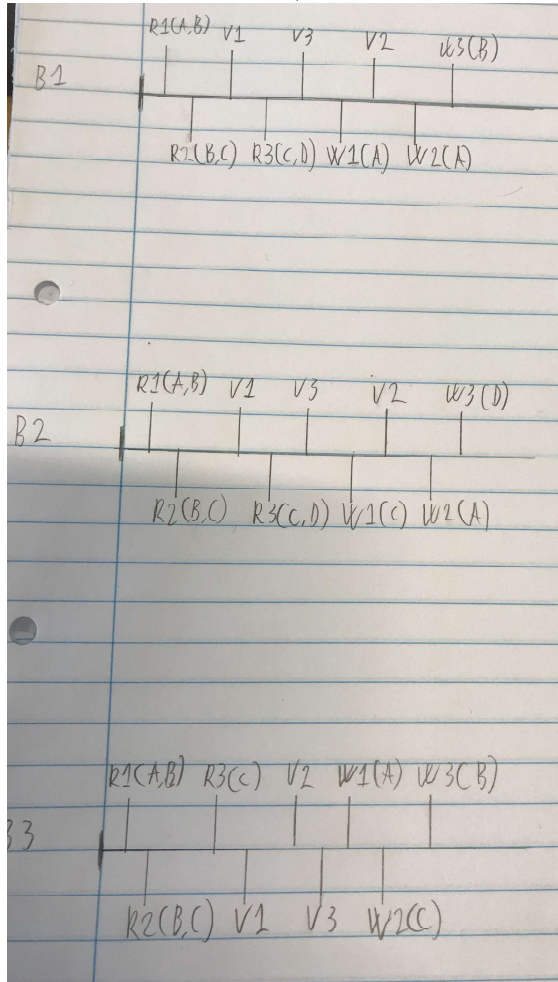 R1(A,B) V1 V3 V2 W3(B)
B1
R2(B,C) R3(C,D) W1(A) W2(A)
R1(A,B) V1 V3 V2 W3(D)
B2
R2(B,C) R3(C,D) W1(C) W2(A)
R1(A,B) R3(C) V2 W1(A) W3(B)
3
R2(B,C) V1 V3 W2(C)